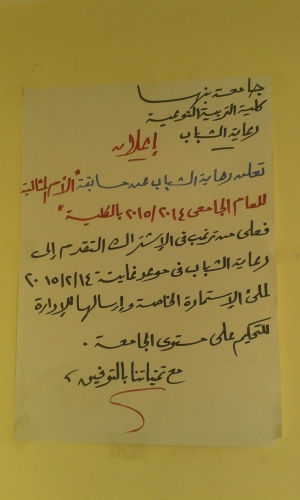 جامعة بنها
كلية التربية النوعية
رعاية الشباب
إعلان
تعلن رعاية الشباب عن مسابقة "الأم المثالية
للعام الجامعى ٢٠١٥/٢٠١٤ بالكلية"
فعلى من ترغب فى الإشتراك التقدم إلى
رعاية الشباب فى موعد غايته ٢٠١٥/٢/١٤
لملئ الإستمارة الخاصة وإرسالها للإدارة
للتحكيم على مستوى الجامعة .
مع تمنياتنا بالتوفيق ،